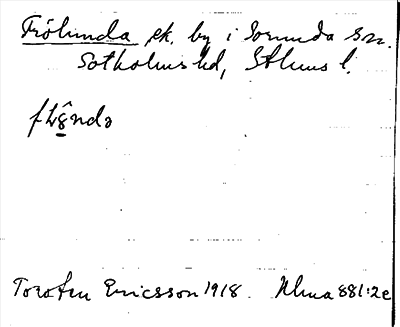 Frölunda ek. by i Sorunda sn.
Sotholms hd, Sthlms l.
Torsten Ericsson 1918. Ulma 881:2e